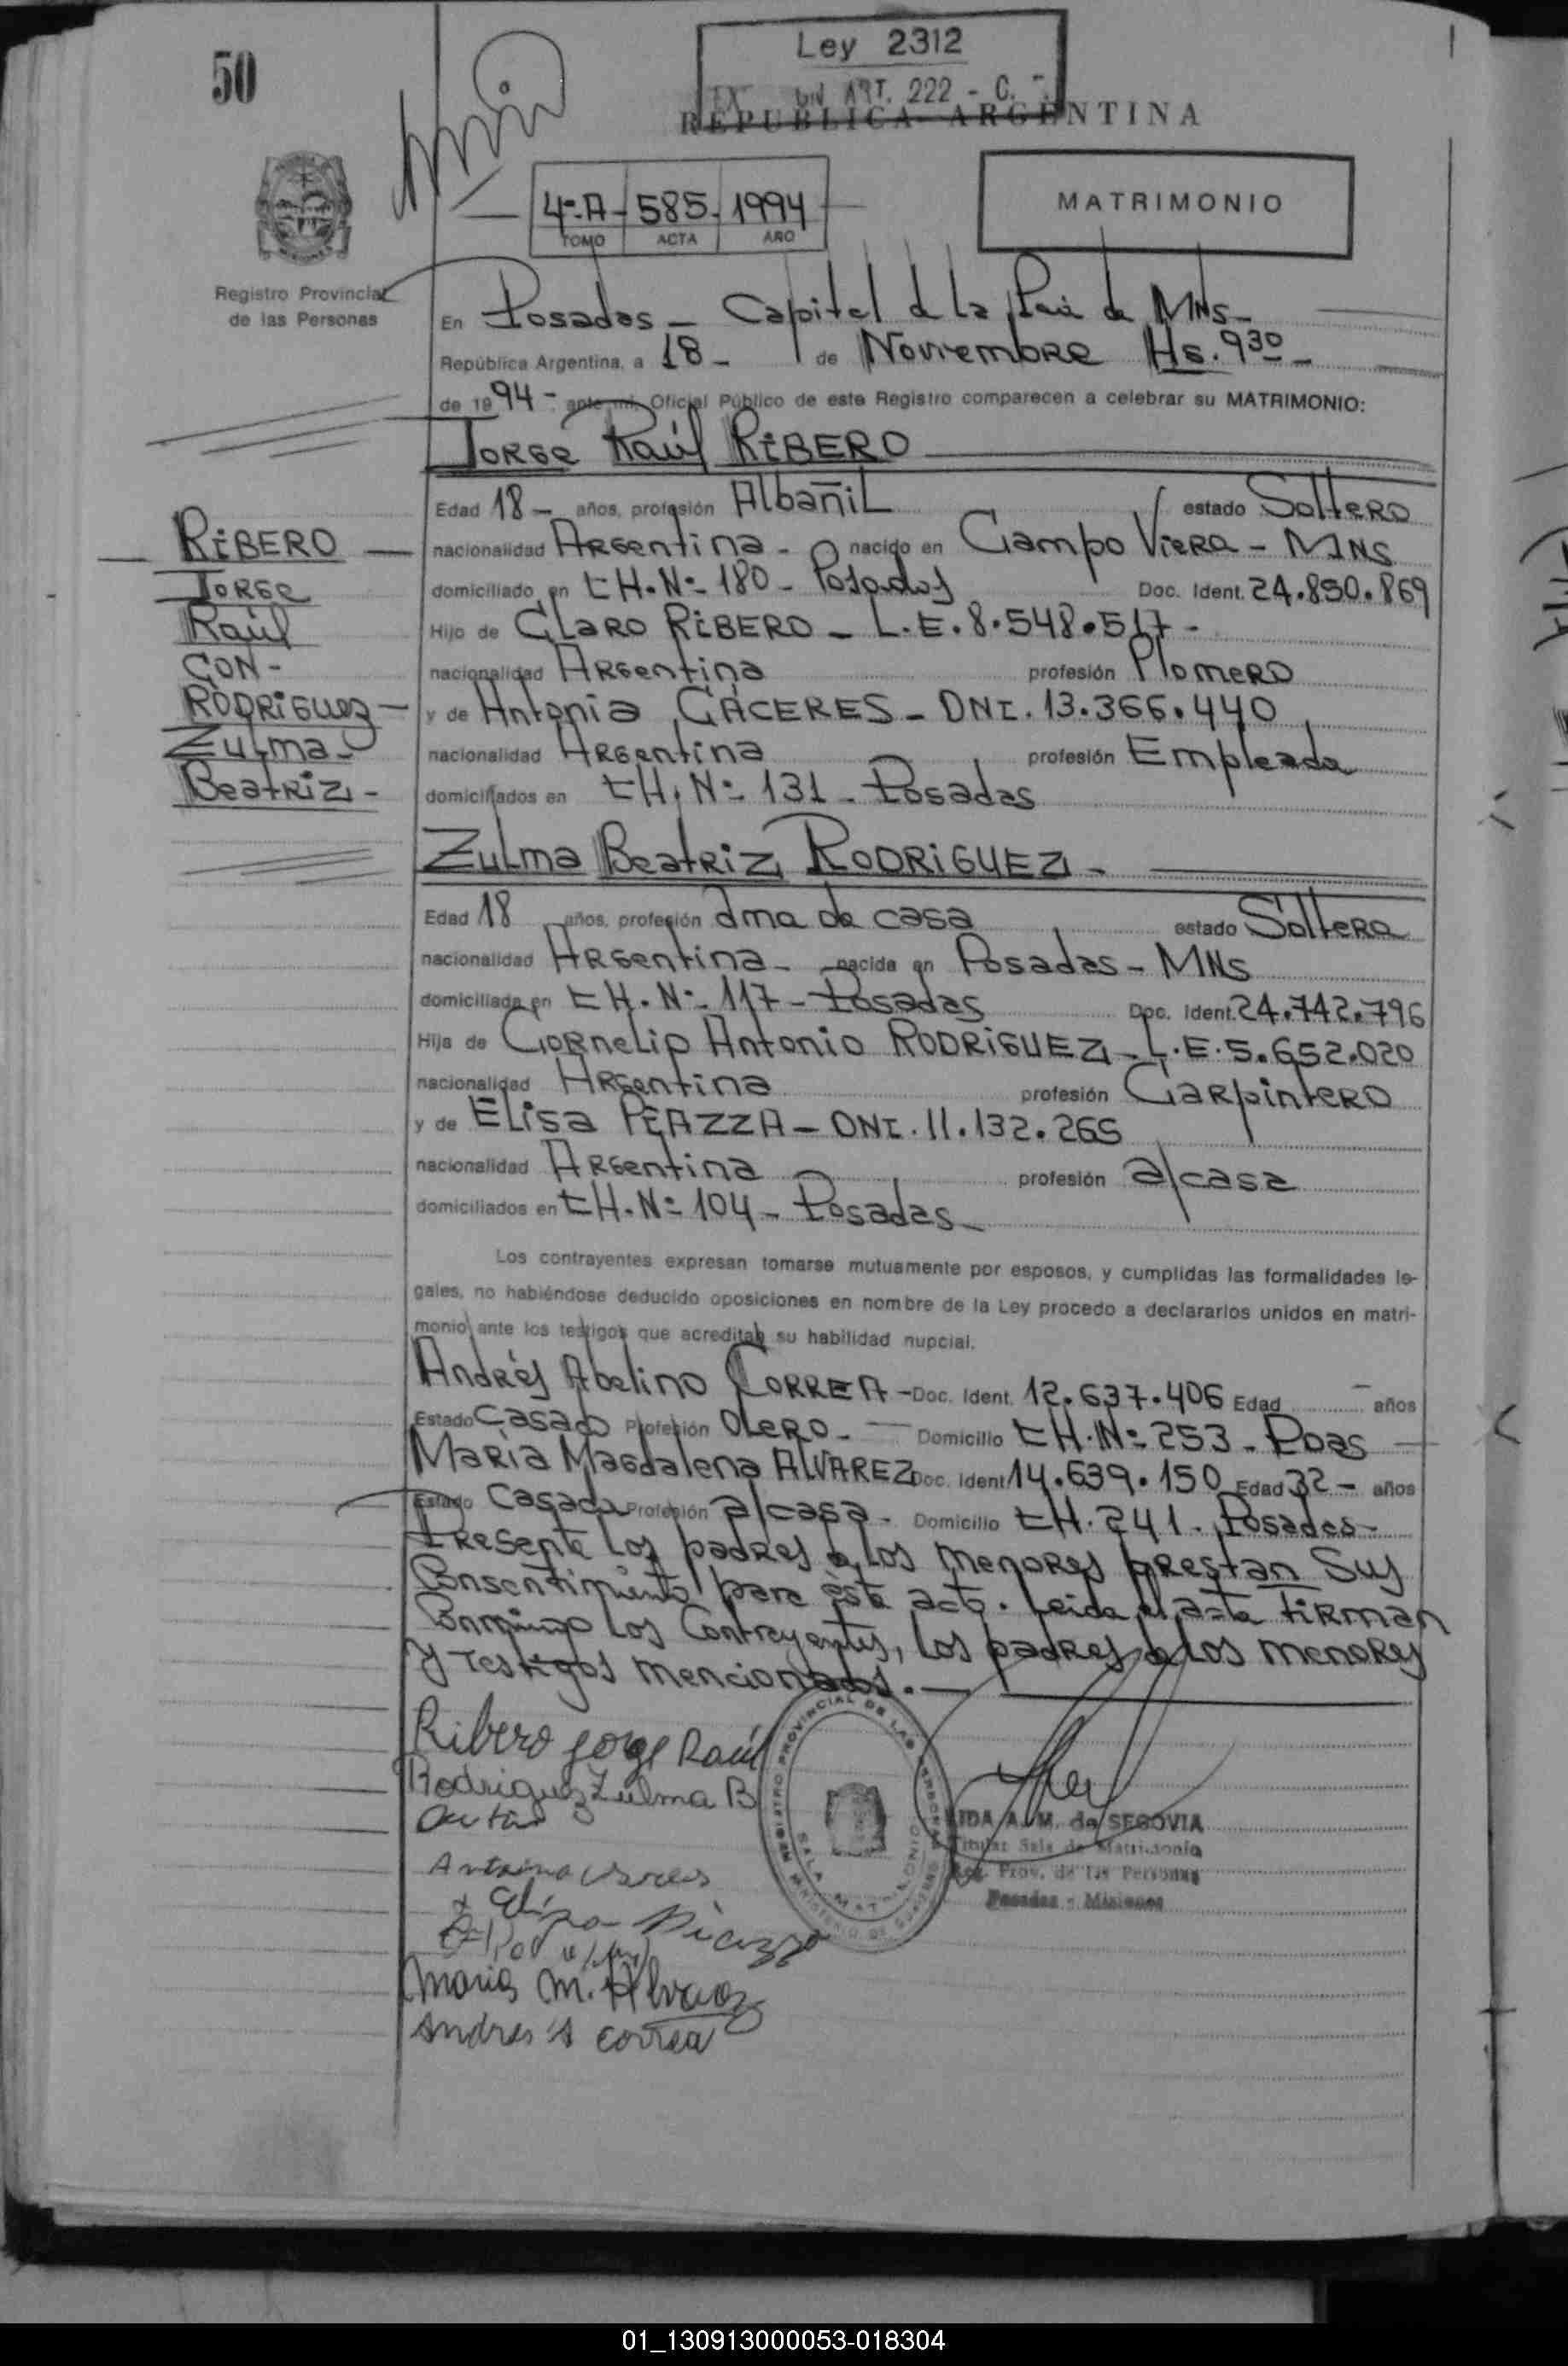 50
Ley 2312
ART. 222 - C.
REPUBLICA ARGENTINA
4º-A- 585- 1994
TOMO ACTA AÑO
MATRIMONIO
Registro Provincial
de las Personas
En Posadas - Capital de la de MNS-
República Argentina, a 18- de Noviembre Hs. 930-
de 1994- ante mí, Oficial Público de este Registro comparecen a celebrar su MATRIMONIO:
Jorge Raúl RIBERO
Edad 18- años, profesión Albañil estado Soltero
nacionalidad Argentina- nacido en Campo Viera - MNS
domiciliado en CH. Nº 180 - Posadas Doc. Ident. 24.850.869
Hijo de CLARO RIBERO - L.E. 8.548.517-
nacionalidad Argentina profesión Plomero
y de Antonia CÁCERES - DNI. 13.366.440
nacionalidad Argentina profesión Empleada
domiciliados en CH. Nº 131 - Posadas
RIBERO
Jorge
Raúl
CON-
RODRIGUEZ
Zulma-
Beatriz-
Zulma Beatriz RODRIGUEZ-
Edad 18 años, profesión ama de casa estado Soltera
nacionalidad Argentina- nacida en Posadas - MNS
domiciliada en CH. Nº 117 - Posadas Doc. Ident. 24.742.796
Hija de Cornelio Antonio RODRIGUEZ - L.E. 5.652.020
nacionalidad Argentina profesión Carpintero
y de Elisa PIAZZA - DNI. 11.132.265
nacionalidad Argentina profesión a/casa
domiciliados en CH. Nº 104 - Posadas-
Los contrayentes expresan tomarse mutuamente por esposos, y cumplidas las formalidades le-
gales, no habiéndose deducido oposiciones en nombre de la Ley procedo a declararlos unidos en matri-
monio ante los testigos que acreditan su habilidad nupcial.
Andrés Abelino CORREA - Doc. Ident. 12.637.406 Edad - años
Estado Casado Profesión Olero- Domicilio CH. Nº 253 - Pdas
María Magdalena ALVAREZ Doc. Ident 14.639.150 Edad 32 - años
Estado Casada Profesión a/casa- Domicilio CH. 241 - Posadas-
Presente los padres de los menores prestan sus
Consentimiento para éste acto. Leida el acta firman
Conmigo los Contrayentes, los padres de los menores
y testigos mencionados.-
Ribero Jorge Raúl
Rodriguez Zulma B
Elisa Piazza
Maria M. Alvarez
Andres A correa
REGISTRO PROVINCIAL DE LAS PERSONAS
SALA MATRIMONIO
MINISTERIO DE GOBIERNO
IDA A. M. de SEGOVIA
Titular Sala de Matrimonio
Reg. Prov. de las Personas
Posadas - Misiones
01_130913000053-018304